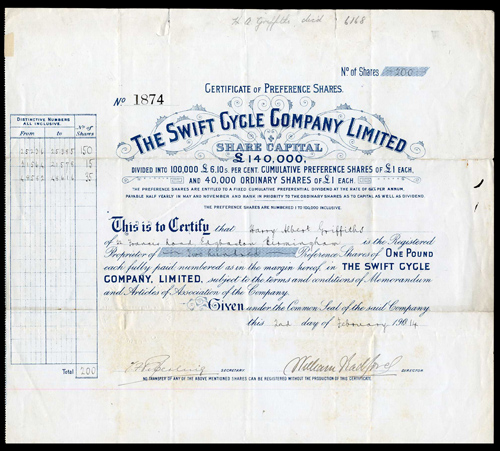 H. A. Griffiths decd 6168
No of Shares 200
CERTIFICATE OF PREFERENCE SHARES.
No 1874
THE SWIFT CYCLE COMPANY LIMITED
SHARE CAPITAL
£140,000,
DIVIDED INTO 100,000 £6.10s. PER CENT. CUMULATIVE PREFERENCE SHARES OF £1 EACH.
AND 40,000 ORDINARY SHARES OF £1 EACH.
THE PREFERENCE SHARES ARE ENTITLED TO A FIXED CUMULATIVE PREFERENTIAL DIVIDEND AT THE RATE OF PER ANNUM,
PAYABLE HALF YEARLY IN MAY AND NOVEMBER AND RANK IN PRIORITY TO THE ORDINARY SHARES AS TO CAPITAL AS WELL AS DIVIDEND.
THE PREFERENCE SHARES ARE NUMBERED 1 TO 100,000 INCLUSIVE.
DISTINCTIVE NUMBERS
ALL INCLUSIVE.
No of
Shares
From to
150
15
35
Total 200
This is to Certify that Harry Albert Griffiths
of Road Edgbaston Birmingham is the Registered
Proprietor of Two Hundred Preference Shares of ONE POUND
each fully paid numbered as in the margin hereof, in THE SWIFT CYCLE
COMPANY, LIMITED, subject to the terms and conditions of Memorandum
and Articles of Association of the Company.
Given under the Common Seal of the said Company,
this 2nd day of February 1904
SECRETARY
William Radford DIRECTOR
NO TRANSFER OF ANY OF THE ABOVE MENTIONED SHARES CAN BE REGISTERED WITHOUT THE PRODUCTION OF THIS CERTIFICATE.